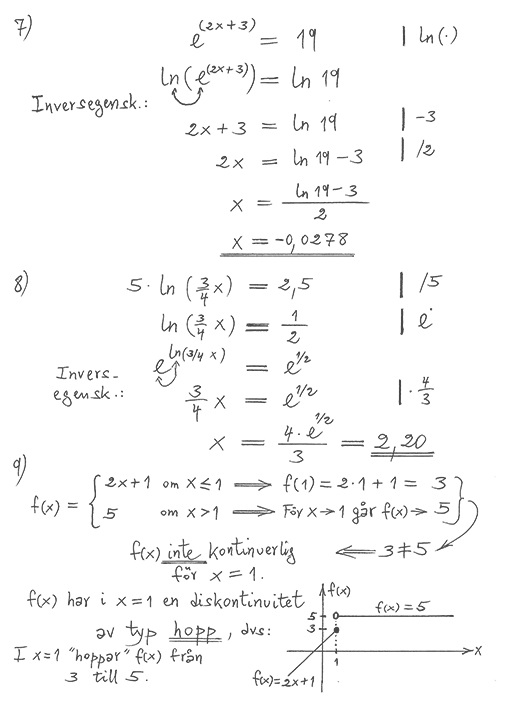 7)
e^(2x+3) = 19 | ln(·)
ln(e^(2x+3)) = ln 19
Inversegensk.:
2x+3 = ln 19 | -3
2x = ln 19 - 3 | /2
x = (ln 19 - 3)/2
x = -0,0278
8) 5· ln (3/4 x) = 2,5 | /5
ln (3/4 x) = 1/2 | e^·
e^ln(3/4 x) = e^1/2
Invers-
egensk.:
3/4 x = e^1/2 | · 4/3
x = (4·e^1/2)/3 = 2,20
9)
f(x) = { 2x+1 om x≤1 ⟹ f(1) = 2·1+1 = 3
5 om x>1 ⟹ För x→1 går f(x)→ 5 }
f(x) inte kontinuerlig ⟸ 3≠5
för x = 1.
f(x) har i x=1 en diskontinuitet
av typ hopp, dvs:
I x=1 "hoppar" f(x) från
3 till 5.
f(x)
5
f(x)=5
3
x
1
f(x)=2x+1